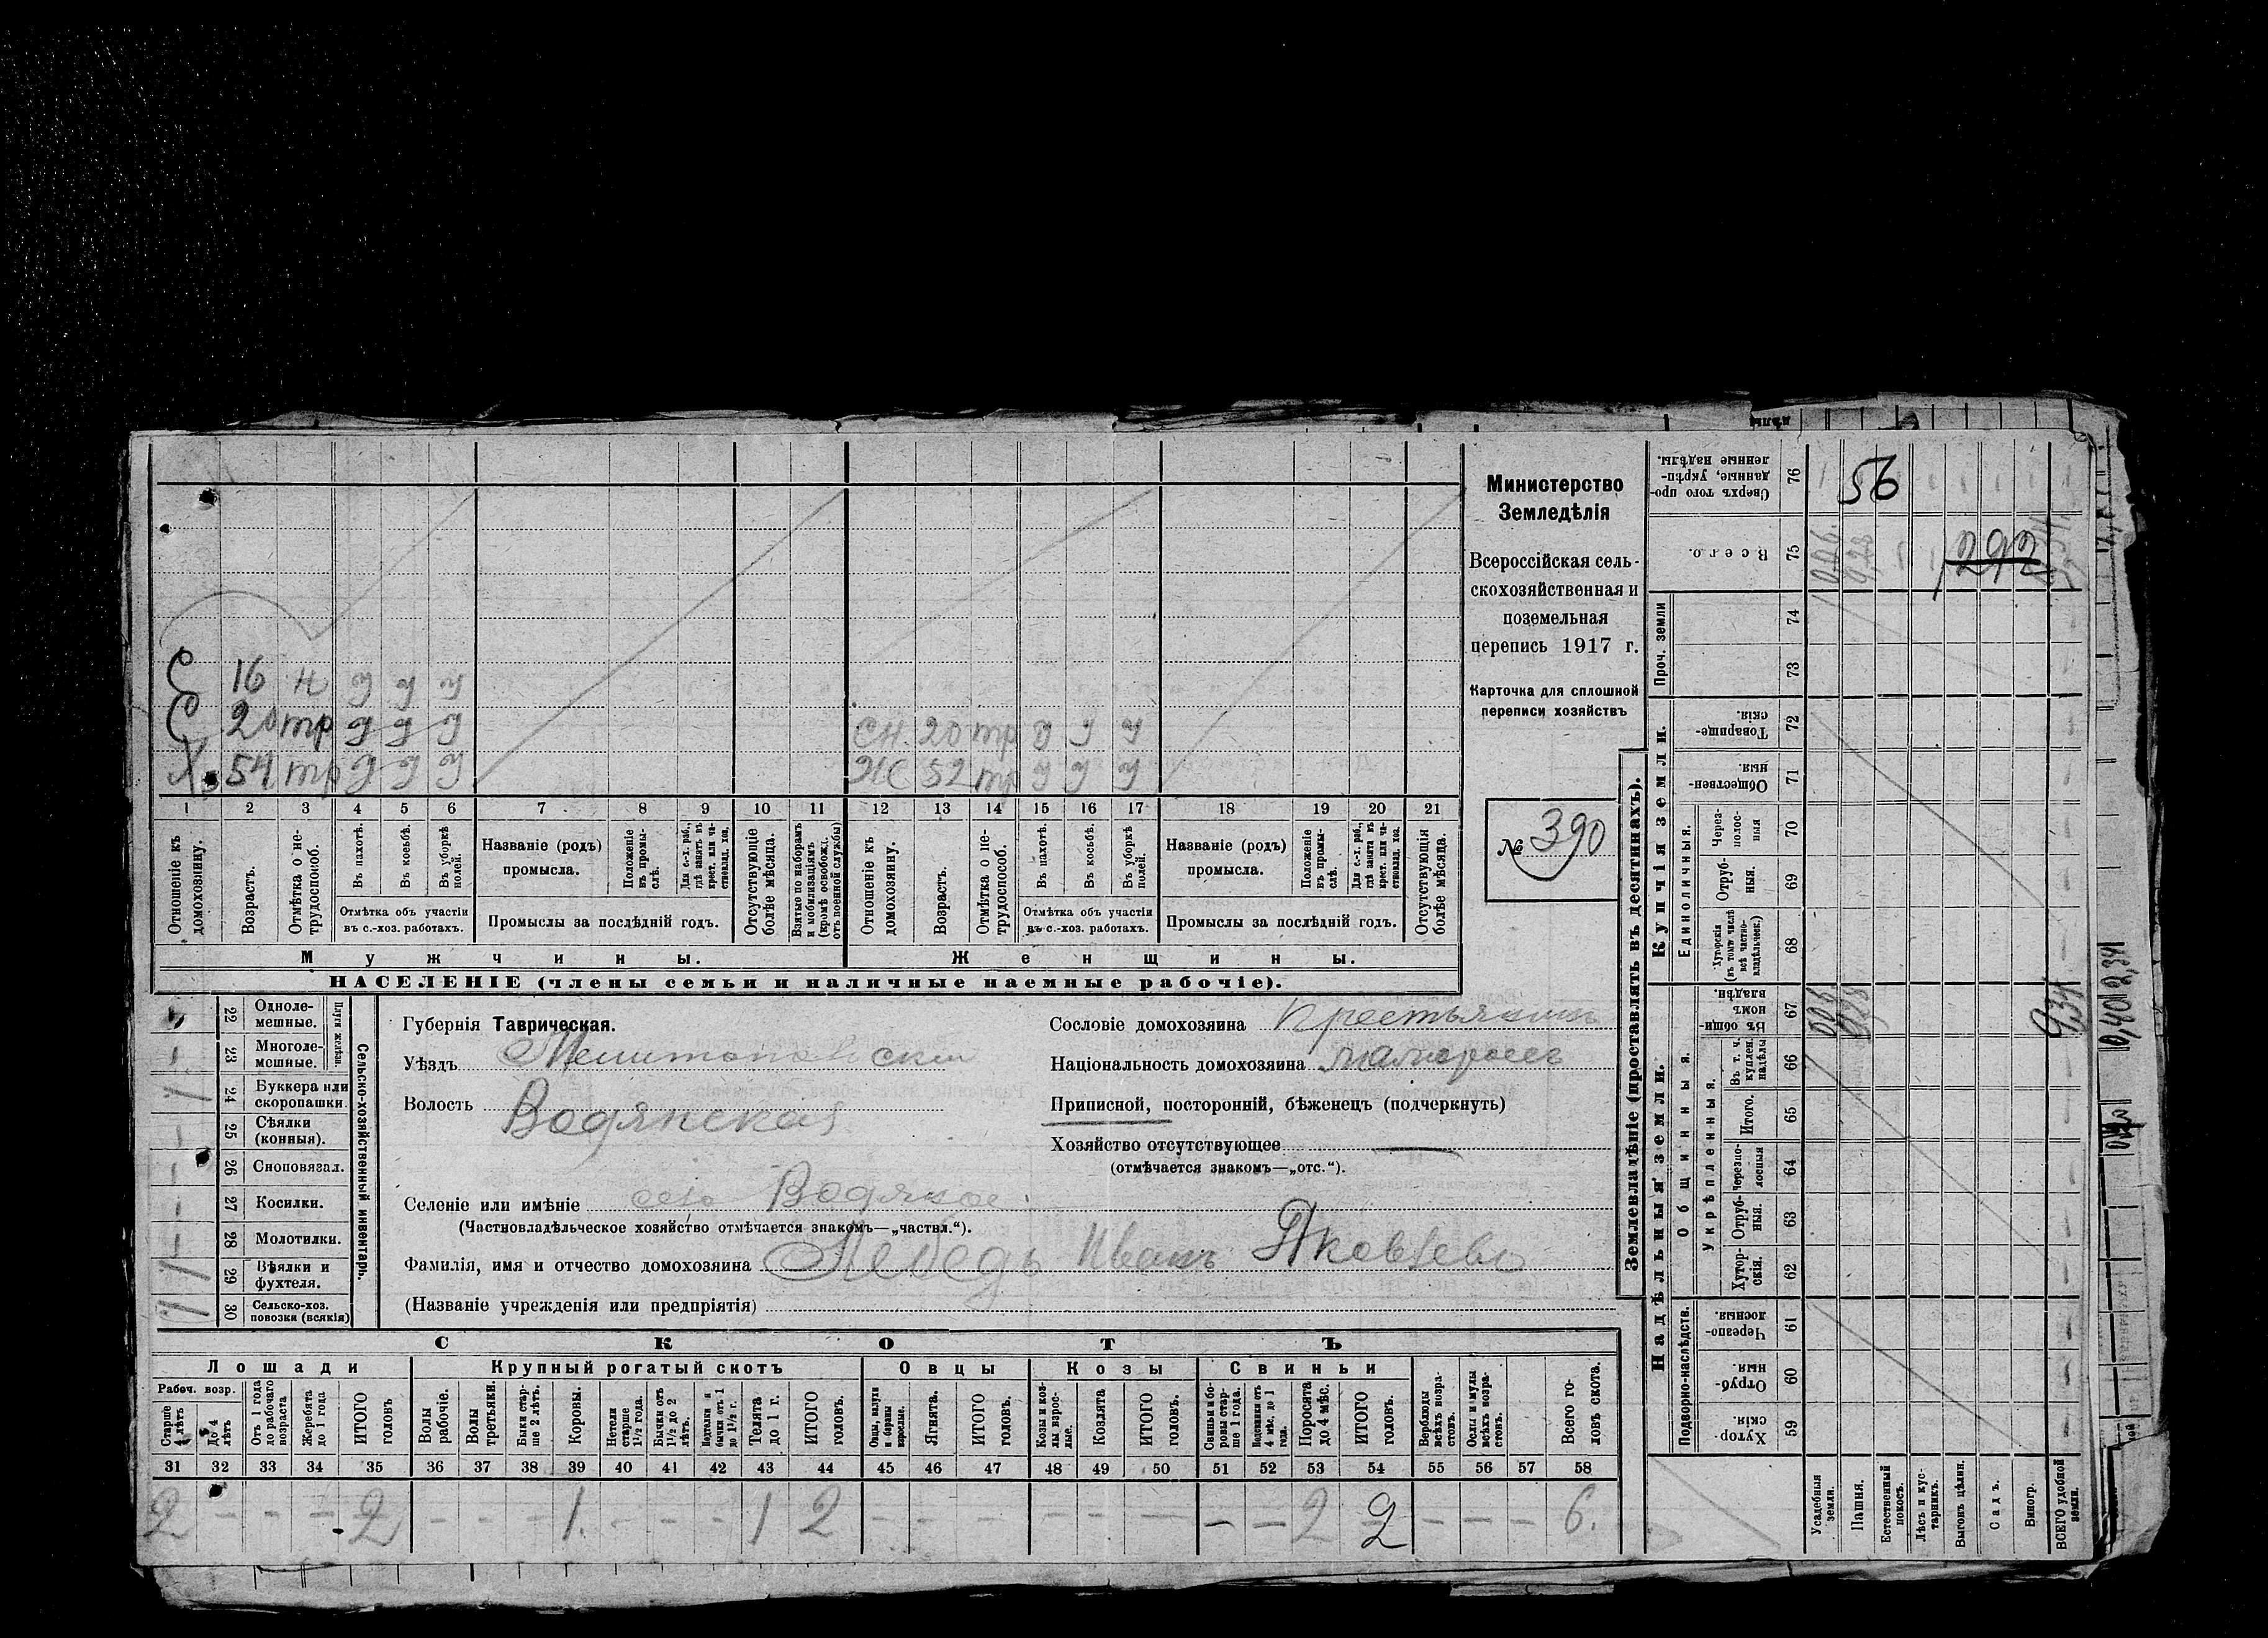 Министерство
Земледѣлія
Всероссійская сель-
скохозяйственная и
поземельная
перепись 1917 г.
Карточка для сплошной
переписи хозяйствъ
№ 390
16 н у у у
20 тр у у у
Х. 54 тр у у у
сн. 20 тр у у у
Ж 52 тр у у у
1 2 3 4 5 6 7 8 9 10 11 12 13 14 15 16 17 18 19 20 21
Отношеніе къ домохозяину.
Возрастъ.
Отмѣтка о не-
трудоспособ.
Въ пахотѣ.
Въ косьбѣ.
Въ уборкѣ полей.
Отмѣтка объ участіи
въ с.-хоз. работахъ.
Названіе (родъ)
промысла.
Положеніе въ промы-
слѣ.
Для с.-х. раб.,
гдѣ занятъ въ
крест. или ча-
стновлад. хоз.
Промыслы за послѣдній годъ.
Отсутствующіе
болѣе мѣсяца.
Взятые по наборамъ
и мобилизаціямъ
(кромѣ освобожд.
отъ военной службы)
Отношеніе къ
домохозяину.
Возрастъ.
Отмѣтка о не-
трудоспособ.
Въ пахотѣ.
Въ косьбѣ.
Въ уборкѣ
полей.
Отмѣтка объ участіи
въ с.-хоз. работахъ.
Названіе (родъ)
промысла.
Положеніе
въ промы-
слѣ.
Для с.-х. раб.,
гдѣ занята въ
крест. или ча-
стновлад. хоз.
Промыслы за послѣдній годъ.
Отсутствующія
болѣе мѣсяца.
Мужчины.
Женщины.
НАСЕЛЕНІЕ (члены семьи и наличные наемные рабочіе).
22 Одноле-
мешные.
23 Многоле-
мешные.
Плуги желѣзн.
24 Буккера или
скоропашки.
25 Сѣялки
(конныя).
26 Сноповязал.
27 Косилки.
28 Молотилки.
29 Вѣялки и
фухтеля.
30 Сельско-хоз.
повозки (всякія)
Сельско-хозяйственный инвентарь.
Губернія Таврическая.
Уѣздъ Мелитопольскій
Волость Водянская
Селеніе или имѣніе село Водяное
(Частновладѣльческое хозяйство отмѣчается знакомъ—„частвл.“).
Фамилія, имя и отчество домохозяина Лебедь Иванъ Яковлевъ
(Названіе учрежденія или предпріятія)
Сословіе домохозяина Крестьянинъ
Національность домохозяина малороссъ
Приписной, посторонній, бѣженецъ (подчеркнуть)
Хозяйство отсутствующее —
(отмѣчается знакомъ—„отс.“).
СКОТЪ
Лошади
Крупный рогатый скотъ
Овцы
Козы
Свиньи
Рабоч. возр.
Старше
4 лѣтъ
До 4
лѣтъ
Отъ 1 года
до рабочаго
возраста
Жеребята
до 1 года
ИТОГО
головъ
Волы
рабочіе.
Волы
третьяки.
Быки стар-
ше 2 лѣтъ.
Коровы.
Нетели
старше
1½ года.
Бычки отъ
1½ до 2
лѣтъ.
Подтелки и
бычки отъ 1
до 1½ г.
Телята
до 1 г.
ИТОГО
головъ.
Овцы, валухи
и бараны
взрослые.
Ягнята.
ИТОГО
головъ.
Козы и коз-
лы взрос-
лые.
Козлята
ИТОГО
головъ.
Свиньи и бо-
ровы стар-
ше 1 года.
Подсвинки отъ
4 мѣс. до 1
года.
Поросята
до 4 мѣс.
ИТОГО
головъ.
Верблюды
всѣхъ возра-
стовъ.
Ослы и мулы
всѣхъ возра-
стовъ.
Всего го-
ловъ скота.
31 32 33 34 35 36 37 38 39 40 41 42 43 44 45 46 47 48 49 50 51 52 53 54 55 56 57 58
2 – – – 2 – – – 1 – – – 1 2 – – – – – – – – 2 2 – – – 6.
Землевладѣніе (проставлять въ десятинахъ).
Надѣльныя земли.
Купчія земли.
Проч. земли
Подворно-наслѣдств.
Общинныя.
Укрѣпленныя.
Единоличныя.
Хутор-
скія. 59
Отруб-
ныя. 60
Черезпо-
лосныя. 61
Хутор-
скія. 62
Отруб-
ныя. 63
Черезпо-
лосныя 64
Итого. 65
Въ т. ч.
куплен.
надѣлы 66
Въ общин-
номъ
владѣн. 67
Хуторскія
(въ томъ числѣ
всѣ частно-
владѣльческ.) 68
Отруб-
ныя. 69
Через-
полос-
ныя 70
Обществен-
ныя. 71
Товарище-
скія. 72
73
74
Всего. 75
Сверхъ того про-
данные, укрѣп-
ленные надѣлы. 76
Усадебныя
земли.
Пашня.
Естественный
покосъ.
Лѣсъ и кус-
тарникъ.
Выгонъ цѣлин.
Садъ.
Виногр.
ВСЕГО удобной
земли.
56
292